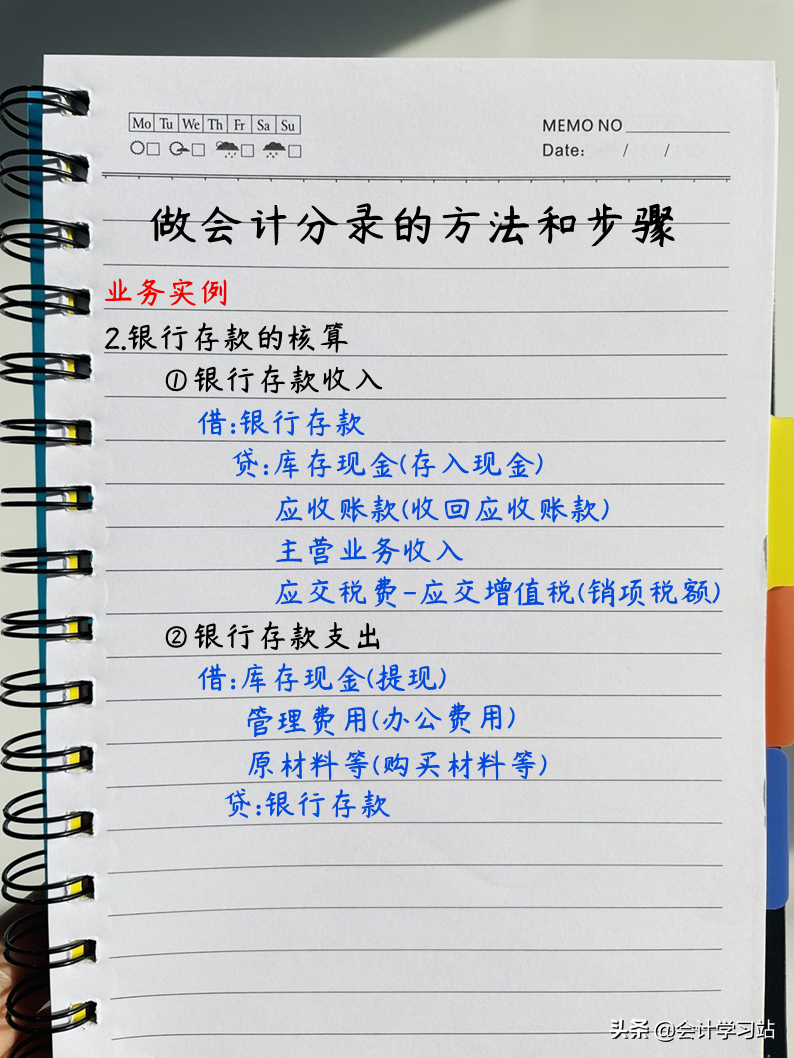 Mo Tu We Th Fr Sa Su
MEMO NO
Date: / /
做会计分录的方法和步骤
业务实例
2.银行存款的核算
①银行存款收入
借:银行存款
贷:库存现金(存入现金)
应收账款(收回应收账款)
主营业务收入
应交税费-应交增值税(销项税额)
②银行存款支出
借:库存现金(提现)
管理费用(办公费用)
原材料等(购买材料等)
贷:银行存款
头条 @会计学习站